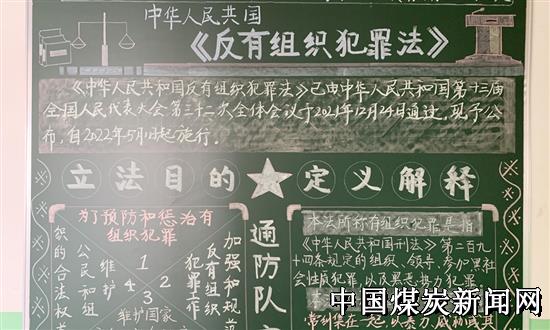 中华人民共和国
《反有组织犯罪法》
《中华人民共和国反有组织犯罪法》已由中华人民共和国第十三届
全国人民代表大会第三十二次全体会议于2021年12月24日通过,现予公
布,自2022年5月1日起施行。
立法目的 ★ 定义解释
为了预防和惩治有
组织犯罪
加强和规
反有组织
犯罪工作
1
2
3
4
维护
公民和组
织的合法权
维护国家
通防队
本法所称有组织犯罪是指
《中华人民共和国刑法》第二百九
十四条规定的组织、领导、参加黑社
会性质组织犯罪,以及黑恶势力犯罪
中国煤炭新闻网